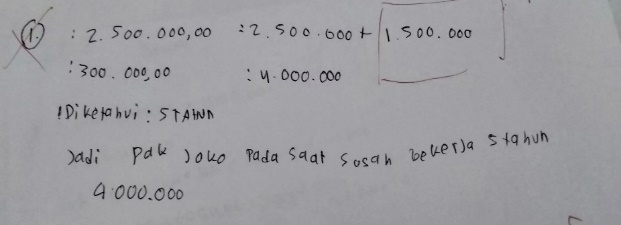 1. : 2.500.000,00 : 2.500.000 + 1.500.000
: 300.000,00 : 4.000.000
! Diketahui : 5 TAHUN
Jadi Pak Joko Pada Saat Sosah bekerja 5 tahun
4.000.000